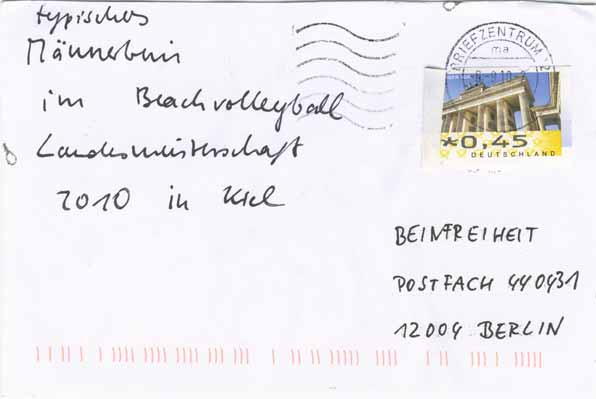 typisches
Männerbein
im Beachvolleyball
Landesmeisterschaft
2010 in Kiel
BRIEFZENTRUM
ma
*0,45
DEUTSCHLAND
BEINFREIHEIT
POSTFACH 440431
12004 BERLIN